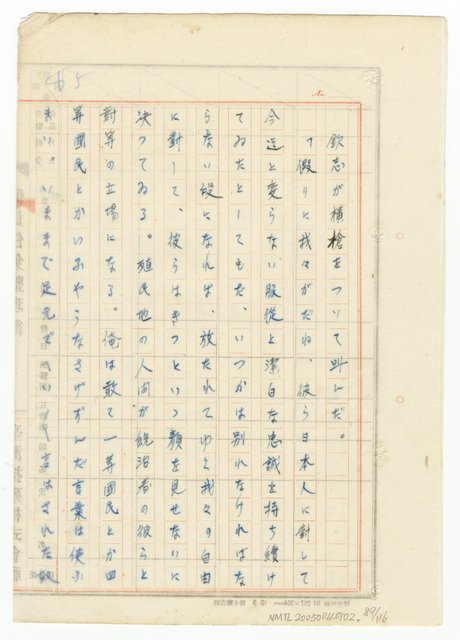 265
No.
欽志が横槍をついて叫んだ。
「假りに我々がだね、彼ら日本人に對して
今迄と変らない服從と潔白な忠誠を持ち續け
てゐたとしてもだ、いつかは別れなければな
らない段になれば、放たれてゆく我々の自由
に對して、彼らはきつといつ顔を見せないに
決つてゐる。殖民地の人間が統治者の彼らと
對等の立場になる。俺は敢て一等國民とか四
等國民とかいふやうなさげすんだ言葉は使ふ
まい。いままで足元で
言はされた
NMTL20050040102.
89/116